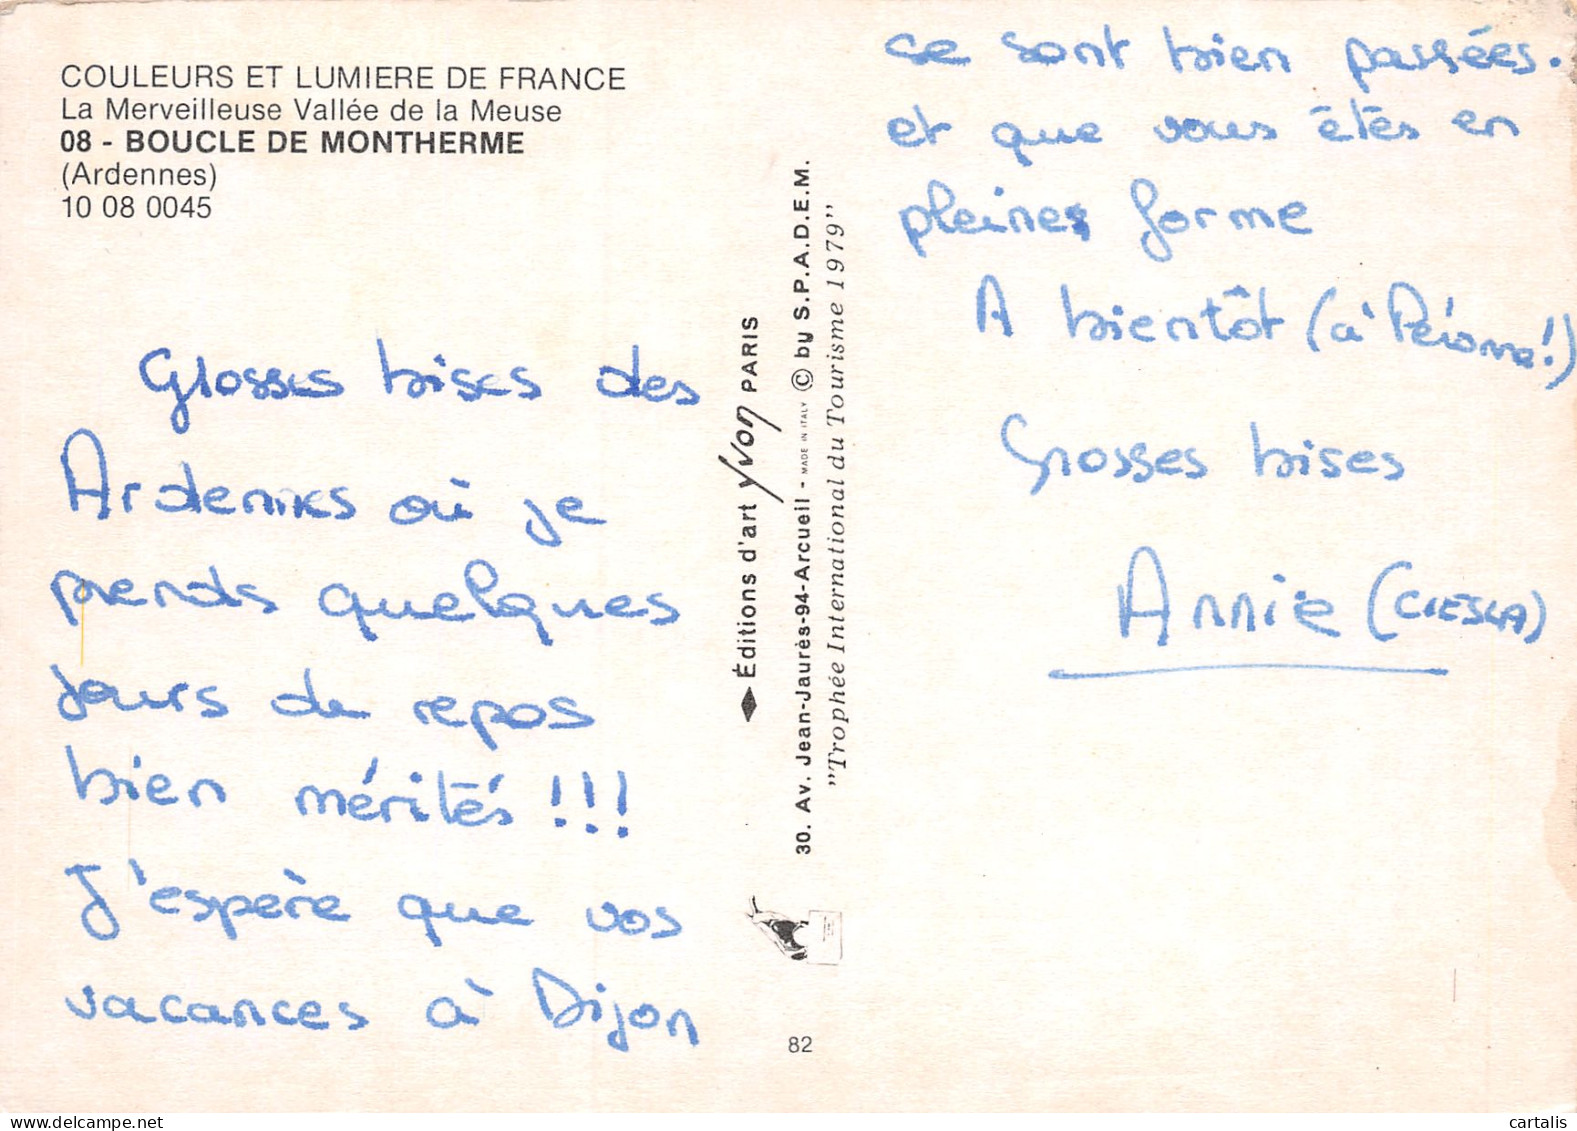 COULEURS ET LUMIERE DE FRANCE
La Merveilleuse Vallée de la Meuse
08 - BOUCLE DE MONTHERME
(Ardennes)
10 08 0045
Grosses bises des
Ardennes où je
prends quelques
jours de repos
bien mérités !!!
J'espère que vos
vacances à Dijon
Éditions d'art Yvon PARIS
30. Av. Jean-Jaurès-94-Arcueil - MADE IN ITALY © by S.P.A.D.E.M.
"Trophée International du Tourisme 1979"
82
se sont bien passées.
et que vous êtes en
pleines forme
A bientôt (à Péronne!)
Grosses bises
Annie (CIESLA)
www.cartalis.com